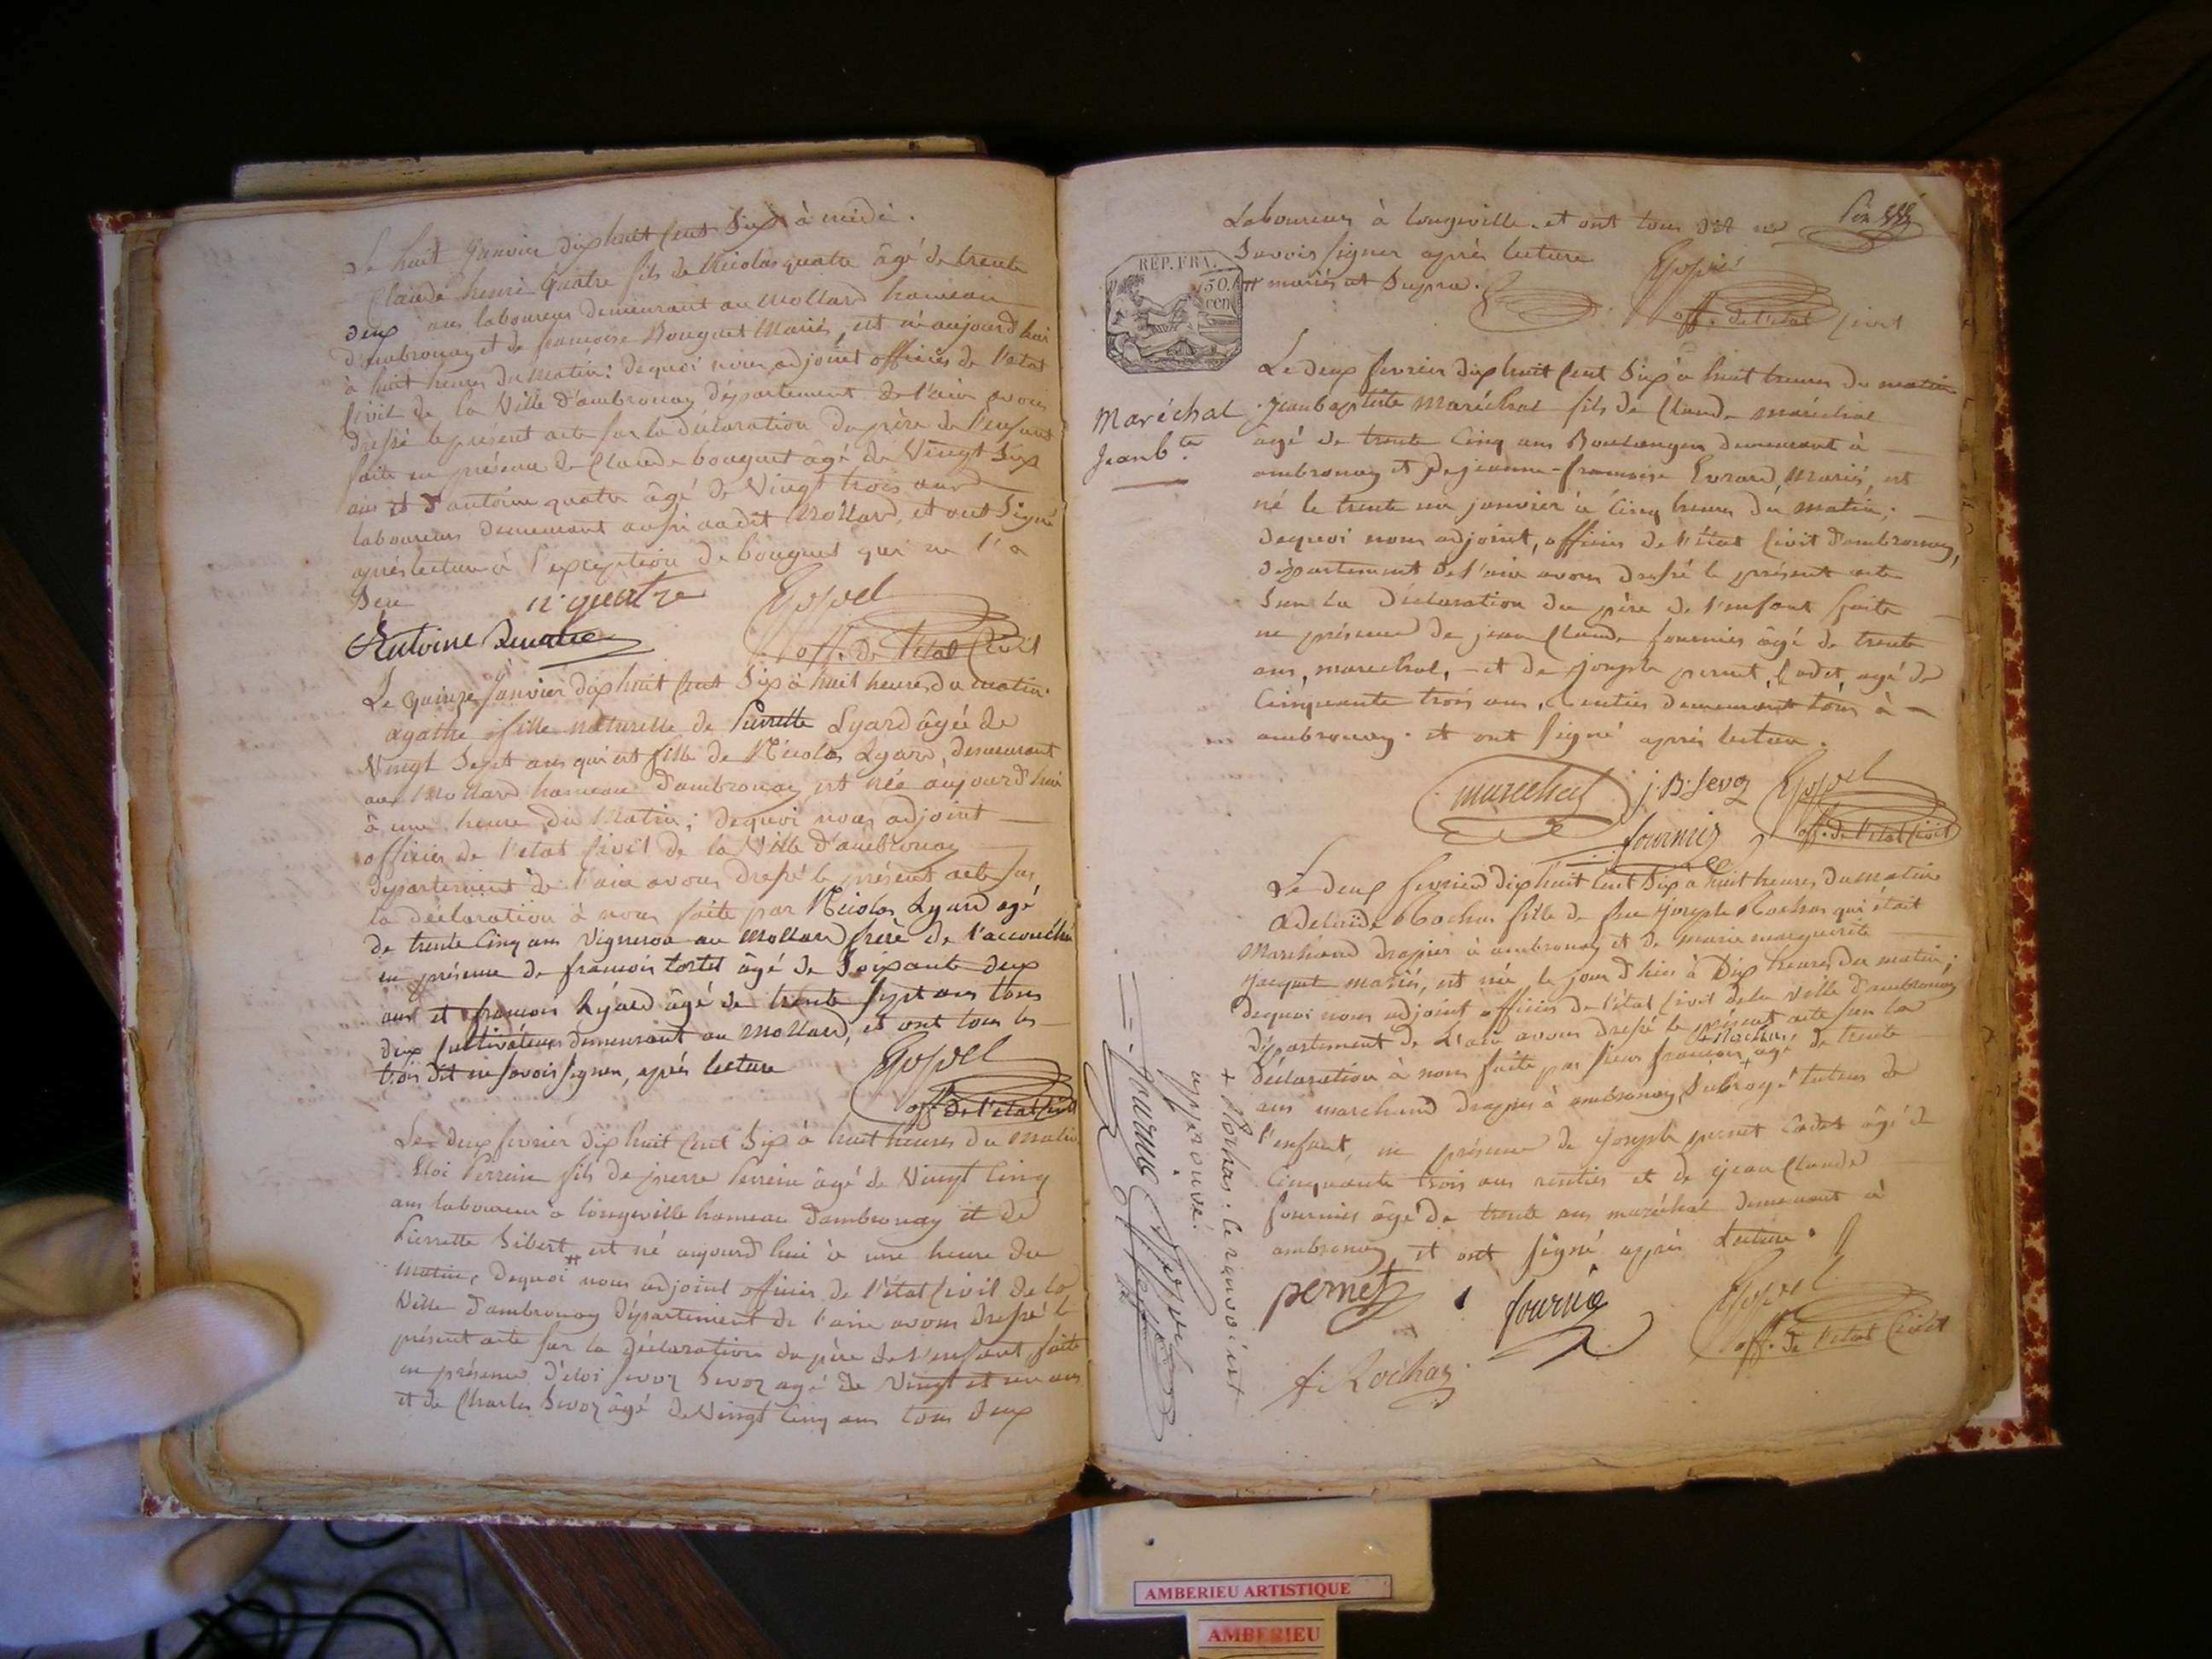 Le huit Janvier dix huit Cent Six à midi.
Claude henri Quatre fils de Nicolas quatre âgé de trente
deux ans laboureur demeurant au Mollard hameau
d'ambronay et de francoise Bouguet Mariés, est né aujourd'hui
à huit heures du Matin: dequoi nous adjoint officier de l'etat
Civil de la Ville d'ambronay département de l'ain avons
dressé le présent acte sur la déclaration du père de l'enfant
faite en présence de Claude bouguet âgé de Vingt Six
ans et d'antoine quatre âgé de Vingt trois ans
laboureurs demeurant aussi audit Mollard, et ont Signé
après lecture à l'exception de bouguet qui ne l'a
Seu
n quatre
off. de l'etat Civil
Antoine
Le quinze Janvier dix huit Cent Six à huit heures du matin.
agathe fille naturelle de Pierrette Lyard âgée de
Vingt Sept ans qui est fille de Nicolas Lyard, demeurant
au Mollard hameau d'ambronay est née aujourd'hui
à une heure du Matin; dequoi nous adjoint
officier de l'etat Civil de la Ville d'ambronay
département de l'ain avons dressé le présent acte sur
la déclaration à nous faite par Nicolas Lyard agé
de trente Cinq ans Vigneron au Mollard frere de l'accouchée
en présence de francois tortel âgé de Soixante deux
ans et francois Lyard âgé de trente Sept ans tous
deux Cultivateurs demeurant au Mollard, et ont tous les
trois dit ne Savoir Signer, après lecture
off. de l'etat Civil
Le deux fevrier dix huit Cent Six à huit heures du Matin
Eloi Perrein fils de pierre Perrein âgé de Vingt Cinq
ans laboureur à longeville hameau d'ambronay et de
Pierrette Sibert # est né aujourd'hui à une heure du
matin, dequoi nous adjoint officier de l'état Civil de la
Ville d'ambronay département de l'ain avons dressé le
présent acte sur la déclaration du père de l'enfant, faite
en présence d'éloi Sevoz agé de Vingt et un ans
et de Charles Sevoz âgé de Vingt Cinq ans tous deux
Laboureurs à longeville. et ont tous dit ne
Savoir Signer après lecture
# mariés ut Supra.
off. de l'etat Civil
REP. FRA.
50.
cen
Le deux fevrier dix huit Cent Six à huit heures du matin
Maréchal
Jean b.te
Jean baptiste Maréchal fils de Claude maréchal
âgé de trente Cinq ans Boulanger demeurant à
ambronay et de jeanne-francoise Evrard, Mariés, est
né le trente un janvier à Cinq heures du matin;
dequoi nous adjoint, officier de l'état Civil d'ambronay,
département de l'ain avons dressé le présent acte
Sur la déclaration du père de l'enfant faite
en présence de jean Claude fournier âgé de trente
ans, marechal, et de joseph pernet, Cadet agé de
Cinquante trois ans, Rentier demeurant tous à
ambronay. et ont Signé après lecture.
marechal
j. B. Sevoz
fournier
off. de l'etat Civil
Le deux fevrier dix huit Cent Six à huit heures du matin
Adelaïde Rochas fille de feu Joseph Rochas qui était
Marchand drapier à ambronay et de marie marguerite
jacquet mariés, est née le jour d'hier à Dix heures du matin;
dequoi nous adjoint officier de l'état Civil de la Ville d'ambronay
département de L'ain avons dressé le présent acte sur la
+ Rochas
déclaration à nous faite par Sieur francois + agé de trente
ans marchand drapier à ambronay, Subrogé tuteur de
l'enfant, en présence de joseph pernet Cadet âgé de
Cinquante trois ans rentier et de jean Claude
fournier âgé de trente ans maréchal demeurant à
ambronay, et ont Signé après lecture.
pernet
fournie
off. de l'etat Civil
f. Rochas
+ Rochas: le renvoi est
approuvé.
AMBERIEU ARTISTIQUE
AMBERIEU